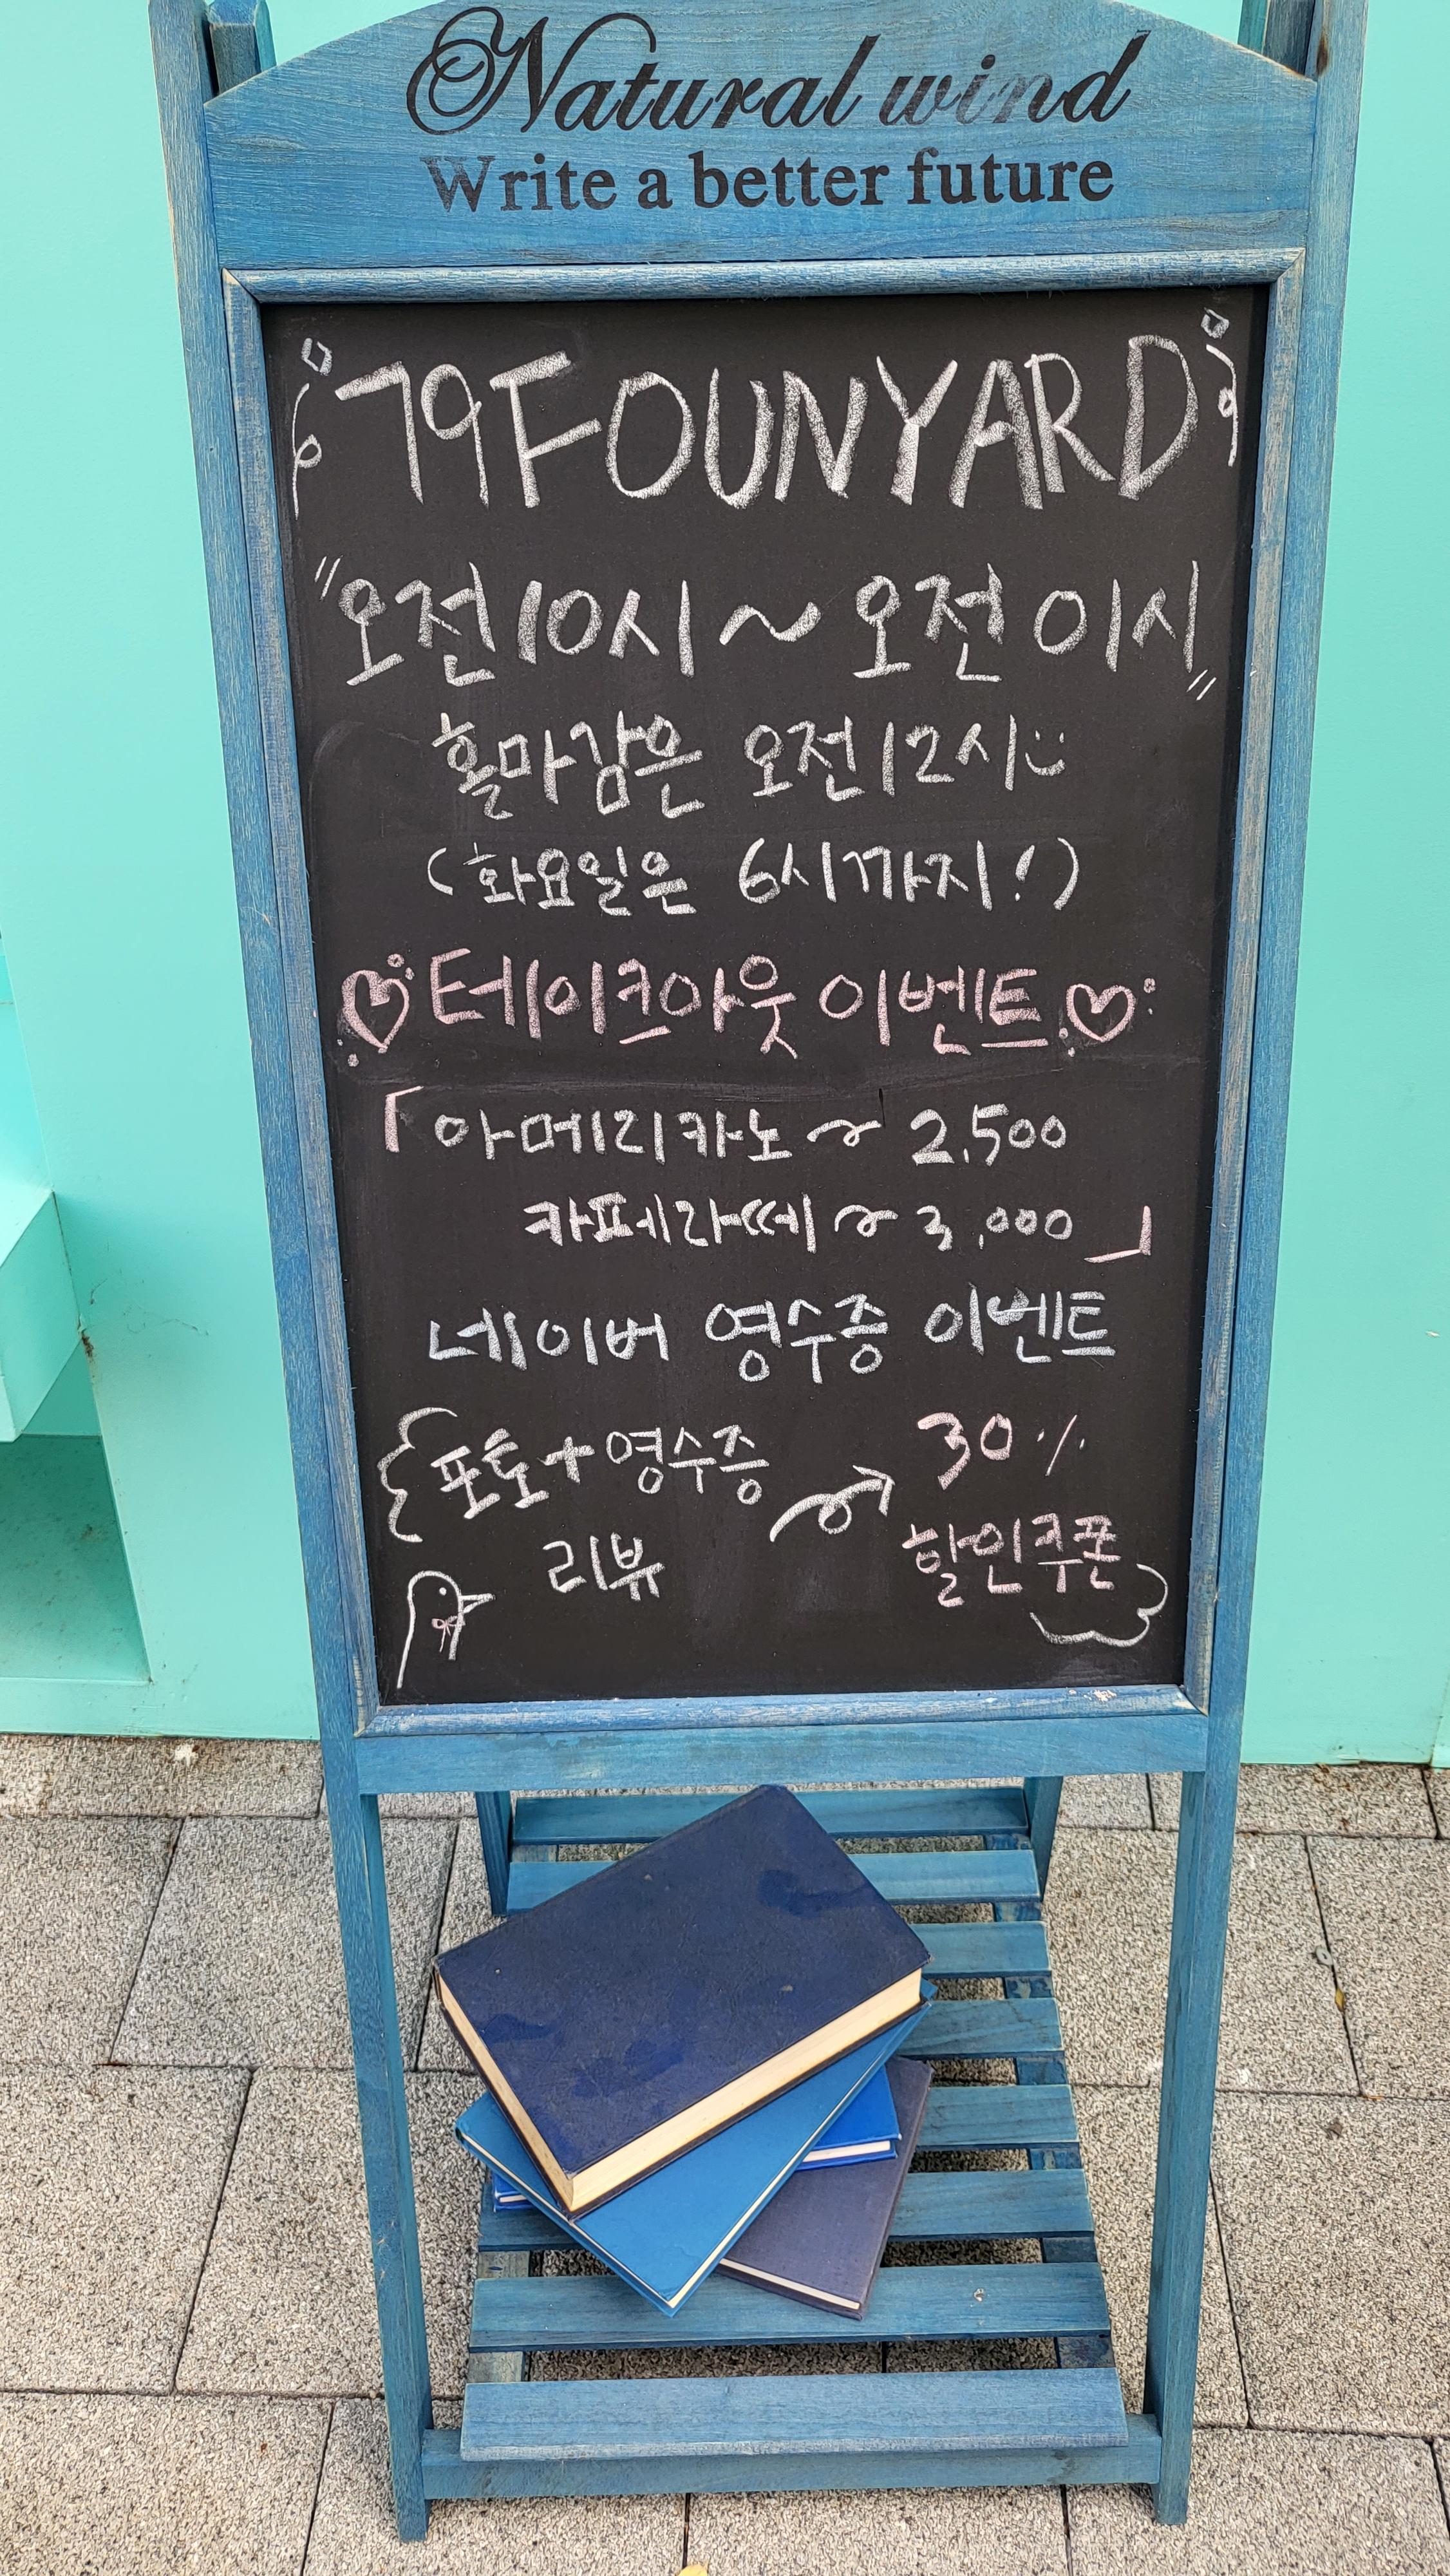 Natural wind
Write a better future
79FOUNYARD
"오전10시~오전 01시"
홀마감은 오전12시
(화요일은 6시까지!)
테이크아웃 이벤트
「아메리카노~2,500
카페라떼~3,000」
네이버 영수증 이벤트
포토+영수증
리뷰
30%
할인쿠폰